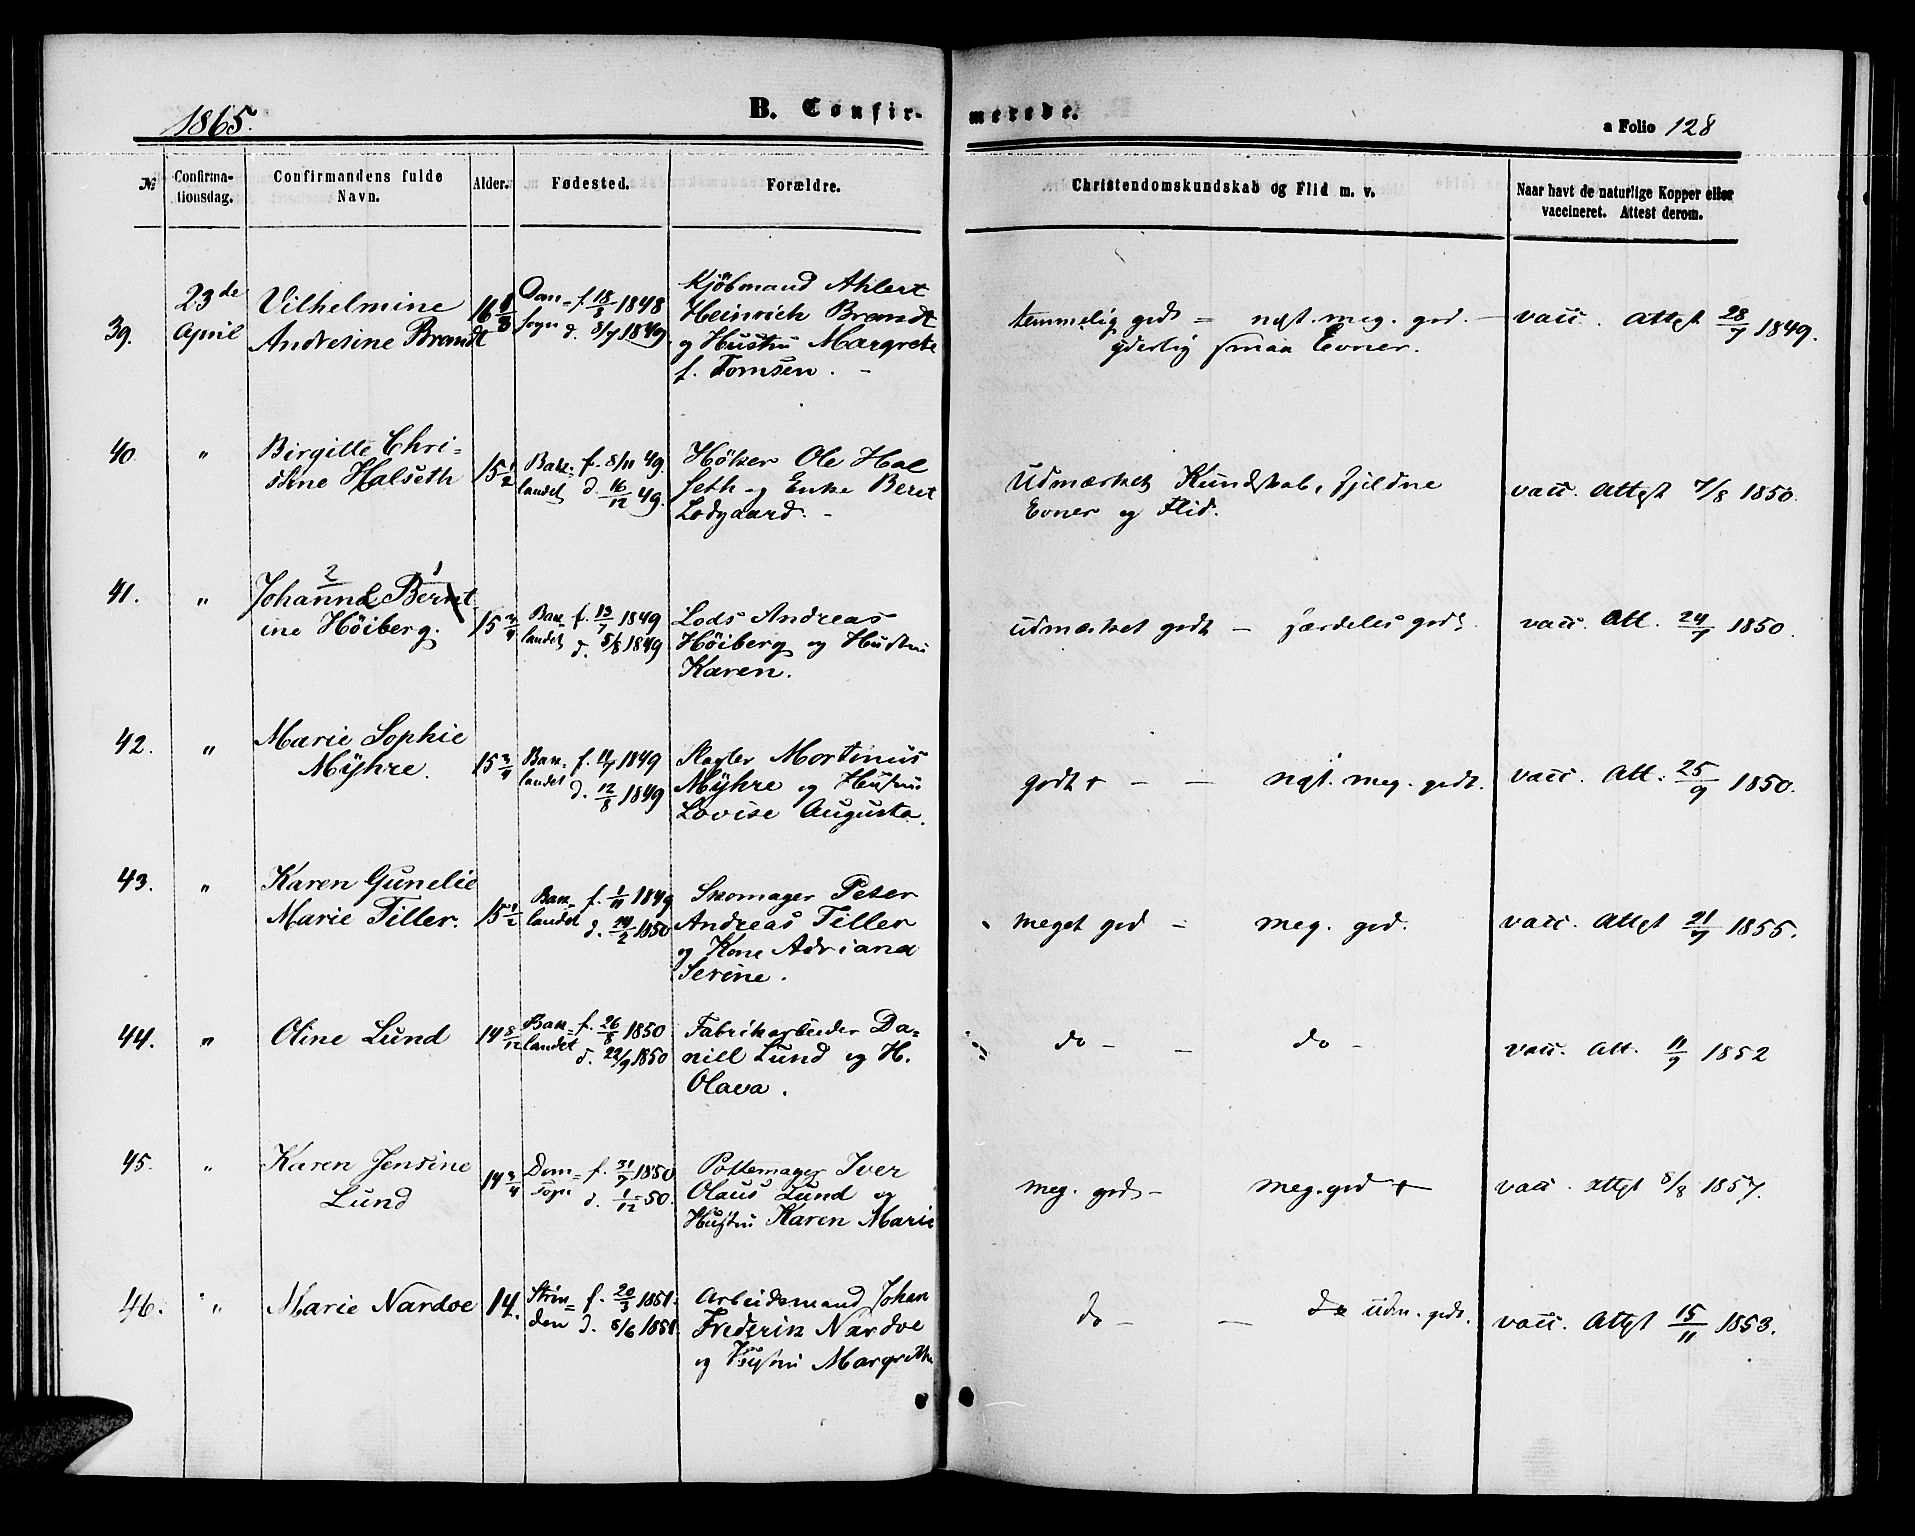 1865.
B. Confir-
merede.
a Folio 128
№
Confirma-
tionsdag.
Confirmandens fulde
Navn.
Alder.
Fødested.
Forældre.
Christendomskundskab og Flid m. v.
Naar havt de naturlige Kopper eller
vaccineret. Attest derom.
39.
23de
April
Vilhelmine
Andresine Brandt
16
f. 18/8 1848
sogn d. 8/7 1849
Kjöbmand Ahlert
Heinrich Brandt
og Hustru Margrete
f. Tomsen. -
temmelig godt = ngt. meg. god. -
yderlig smaa Evner.
vacc. Attgt 28/7 1849.
40
"
Birgitte Chri=
stine Halseth
15 1/2
Bak= f. 8/11 49.
landet d. 16/12 49.
Höker Ole Hal
seth og Enke Beret
Lodgaard. -
Udmærket Kundskab, sjeldne
Evner og Flid.
vacc. Attgt 7/8 1850.
41.
"
2 1
Johanne Bernt
ine Höiberg.
15 3/4
Bak= f. 13/7 1849
landet d. 5/8 1849
Lods Andreas
Höiberg og Hustru
Karen.
udmærket godt - særdeles godt.
vacc. Att. 24/7 1850.
42.
"
Marie Sophie
Myhre.
15 3/4
Bak= f. 1849
landet d. 12/8 1849
Slagter Martinus
Myhre og Hustru
Lovise Augusta.
godt + - - ngt. meg. godt.
vacc. Att. 25/9 1850.
43.
"
Karen Gunelie
Marie Tiller.
15 1/2
Bak= f. 1/11 1849
landet d. 1850
Skomager Peter
Andreas Tiller
og Kone Adriana
Serine.
meget god - meg. god.
vacc. Attgt 21/7 1855.
44.
"
Oline Lund
14 8/12
Bak= f. 26/8 1850
landet d. 22/9 1850
Fabrikarbeider Da=
niell Lund og H.
Olava.
do - - do -
vacc. Att. 11/9 1852
45.
"
Karen Jensine
Lund
14 3/4
Dom= f. 31/7 1850
sogn d. 1/12 50.
Pottemager Iver
Olaus Lund og
Hustru Karen Marie
meg. godt - meg. god +
vacc. attgt 8/8 1857.
46.
"
Marie Nardoe
14.
Strin= f. 20/3 1851.
den d. 8/6 1851.
Arbeidsmand Johan
Frederik Nardoe
og Hustru Margrethe
do - - do udm. godt.
vacc. Attgt 15/11 1853.